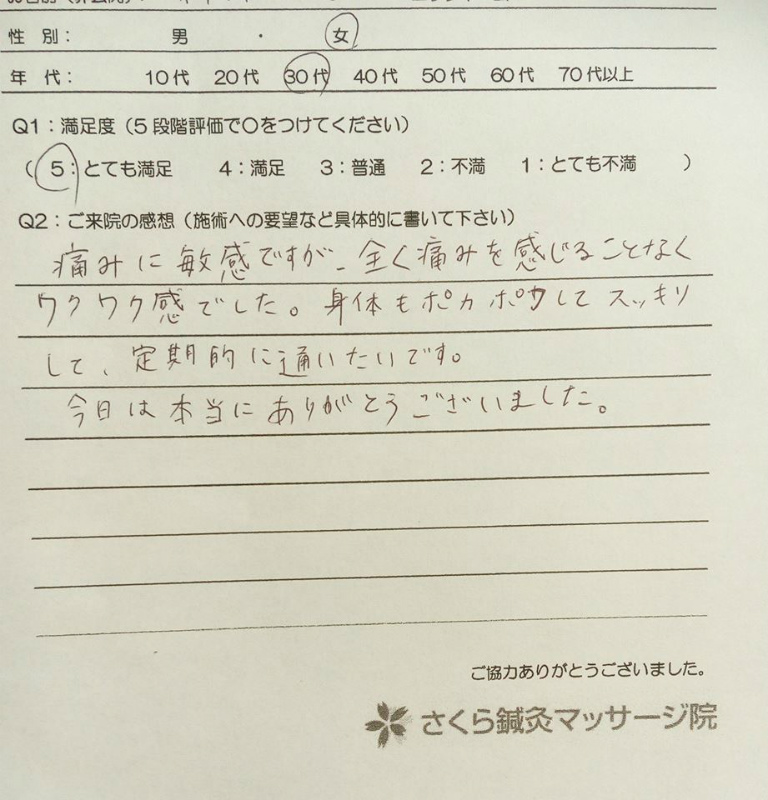 性 別： 男 ・ 女
年 代： 10代 20代 30代 40代 50代 60代 70代以上
Q1：満足度（5段階評価で〇をつけてください）
（ 5：とても満足 4：満足 3：普通 2：不満 1：とても不満 ）
Q2：ご来院の感想（施術への要望など具体的に書いて下さい）
痛みに敏感ですが、全く痛みを感じることなく
ワクワク感でした。身体もポカポカしてスッキリ
して、定期的に通いたいです。
今日は本当にありがとうございました。
ご協力ありがとうございました。
さくら鍼灸マッサージ院